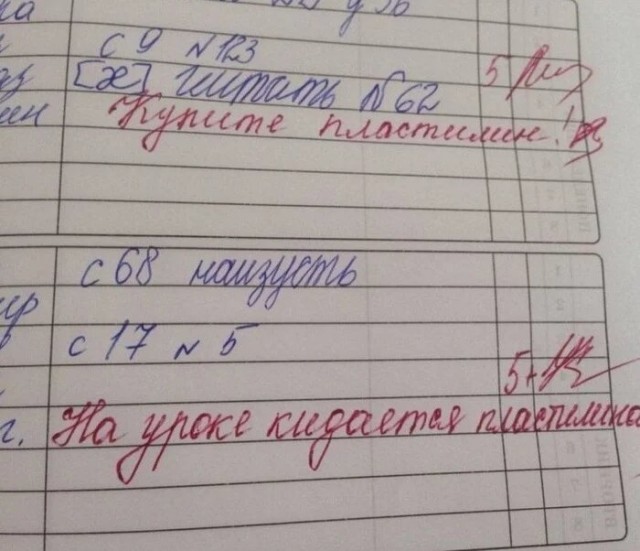 с 9 №123
5
[ж] читать №62
Купите пластилин!
с 68 наизусть
с 17 № 5
5+
г. На уроке кидается пластилино